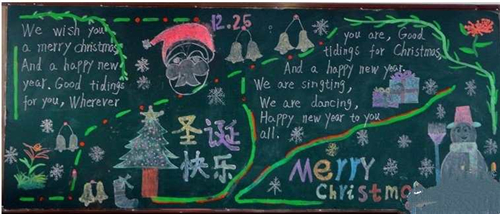 We wish you
a merry christmas,
And a happy new
year. Good tidings
for you, Wherever
12.25
you are, Good
tidings for Christmas,
And a happy new year.
We are singting,
We are dancing,
Happy new year to you
all.
圣诞
快乐
Merry
Christmas